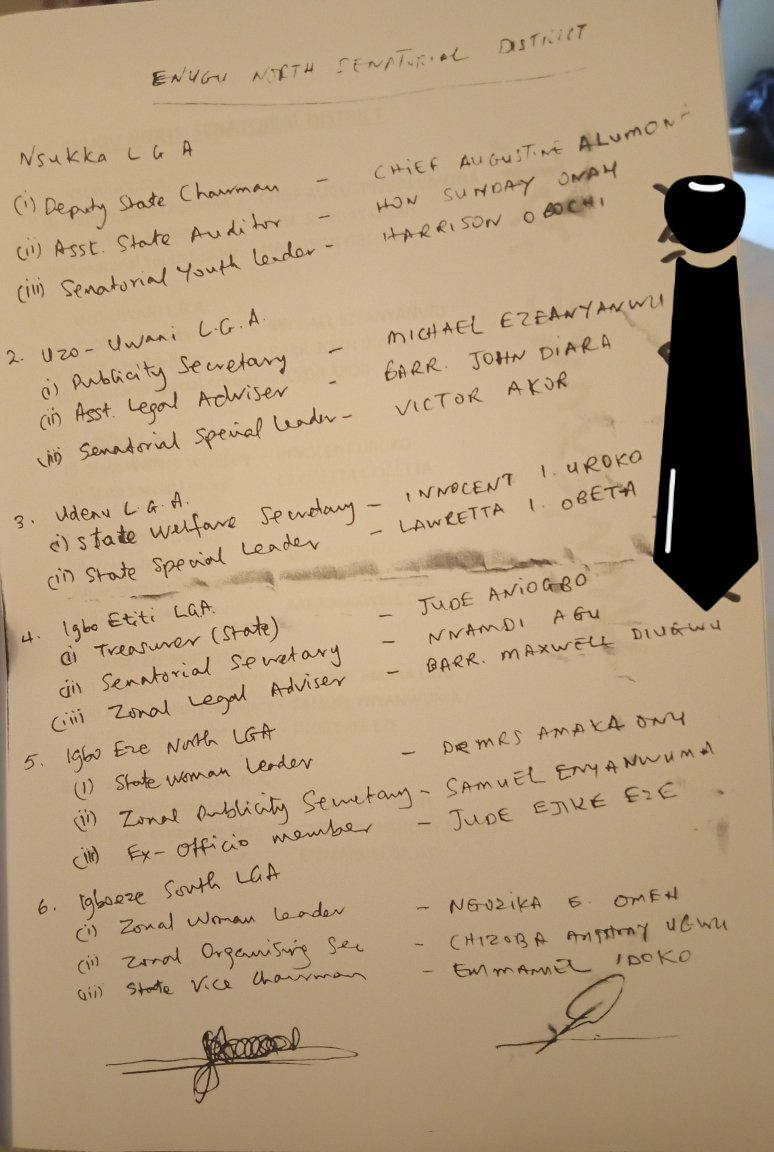 ENUGU NORTH SENATORIAL DISTRICT
Nsukka L G A
(i) Deputy State Chairman - CHIEF AUGUSTINE ALUMONA
(ii) Asst. State Auditor - HON SUNDAY ONAH
(iii) Senatorial Youth leader - HARRISON OBOCHI
2. Uzo-Uwani L.G.A.
(i) Publicity Secretary - MICHAEL EZEANYANWU
(ii) Asst. Legal Adviser - BARR. JOHN DIARA
(iii) Senatorial Special Leader - VICTOR AKOR
3. Udenu L.G.A.
(i) State Welfare Secretary - INNOCENT I. UROKO
(ii) State Special Leader - LAWRETTA I. OBETA
4. Igbo Etiti LGA.
(i) Treasurer (State) - JUDE ANIOGBO
(ii) Senatorial Secretary - NNAMDI AGU
(iii) Zonal Legal Adviser - BARR. MAXWELL DIUGWU
5. Igbo Eze North LGA
(i) State woman Leader - DR MRS AMAKA ONU
(ii) Zonal Publicity Secretary - SAMUEL ENYANWUMA
(iii) Ex-Officio member - JUDE EJIKE EZE
6. Igboeze South LGA
(i) Zonal Woman Leader - NGOZIKA E. OMEH
(ii) Zonal Organising Sec - CHIZOBA ANTHONY UGWU
(iii) State Vice Chairman - EMMANUEL IDOKO